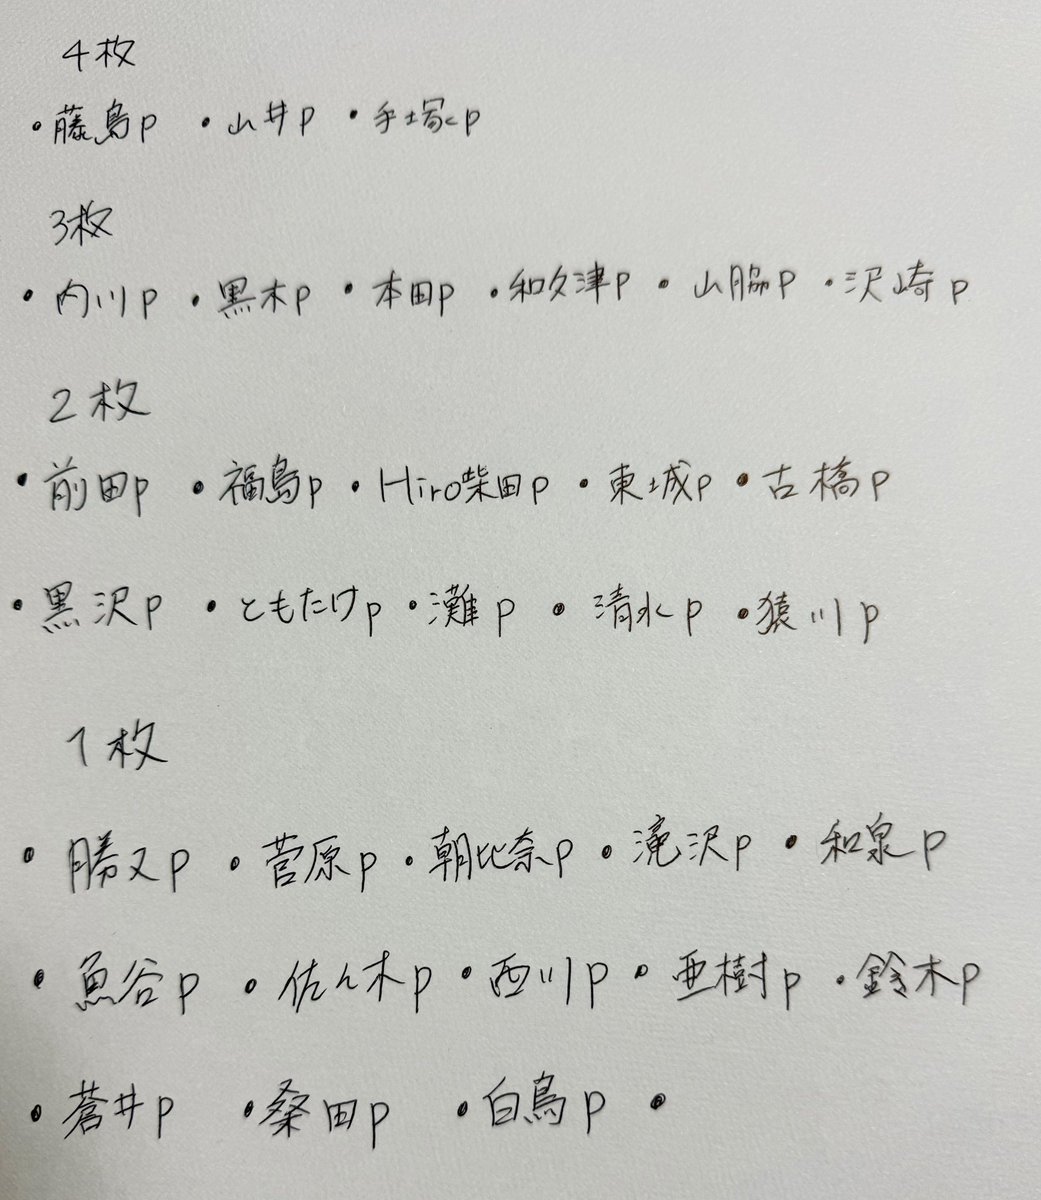 4枚
・藤島p ・山井p ・手塚p
3枚
・内川p ・黒木p ・本田p ・和久津p ・山脇p ・沢崎p
2枚
・前田p ・福島p ・Hiro柴田p ・東城p ・古橋p
・黒沢p ・ともたけp ・灘p ・清水p ・猿川p
1枚
・勝又p ・菅原p ・朝比奈p ・滝沢p ・和泉p
・魚谷p ・佐々木p ・西川p ・亜樹p ・鈴木p
・蒼井p ・桑田p ・白鳥p ・